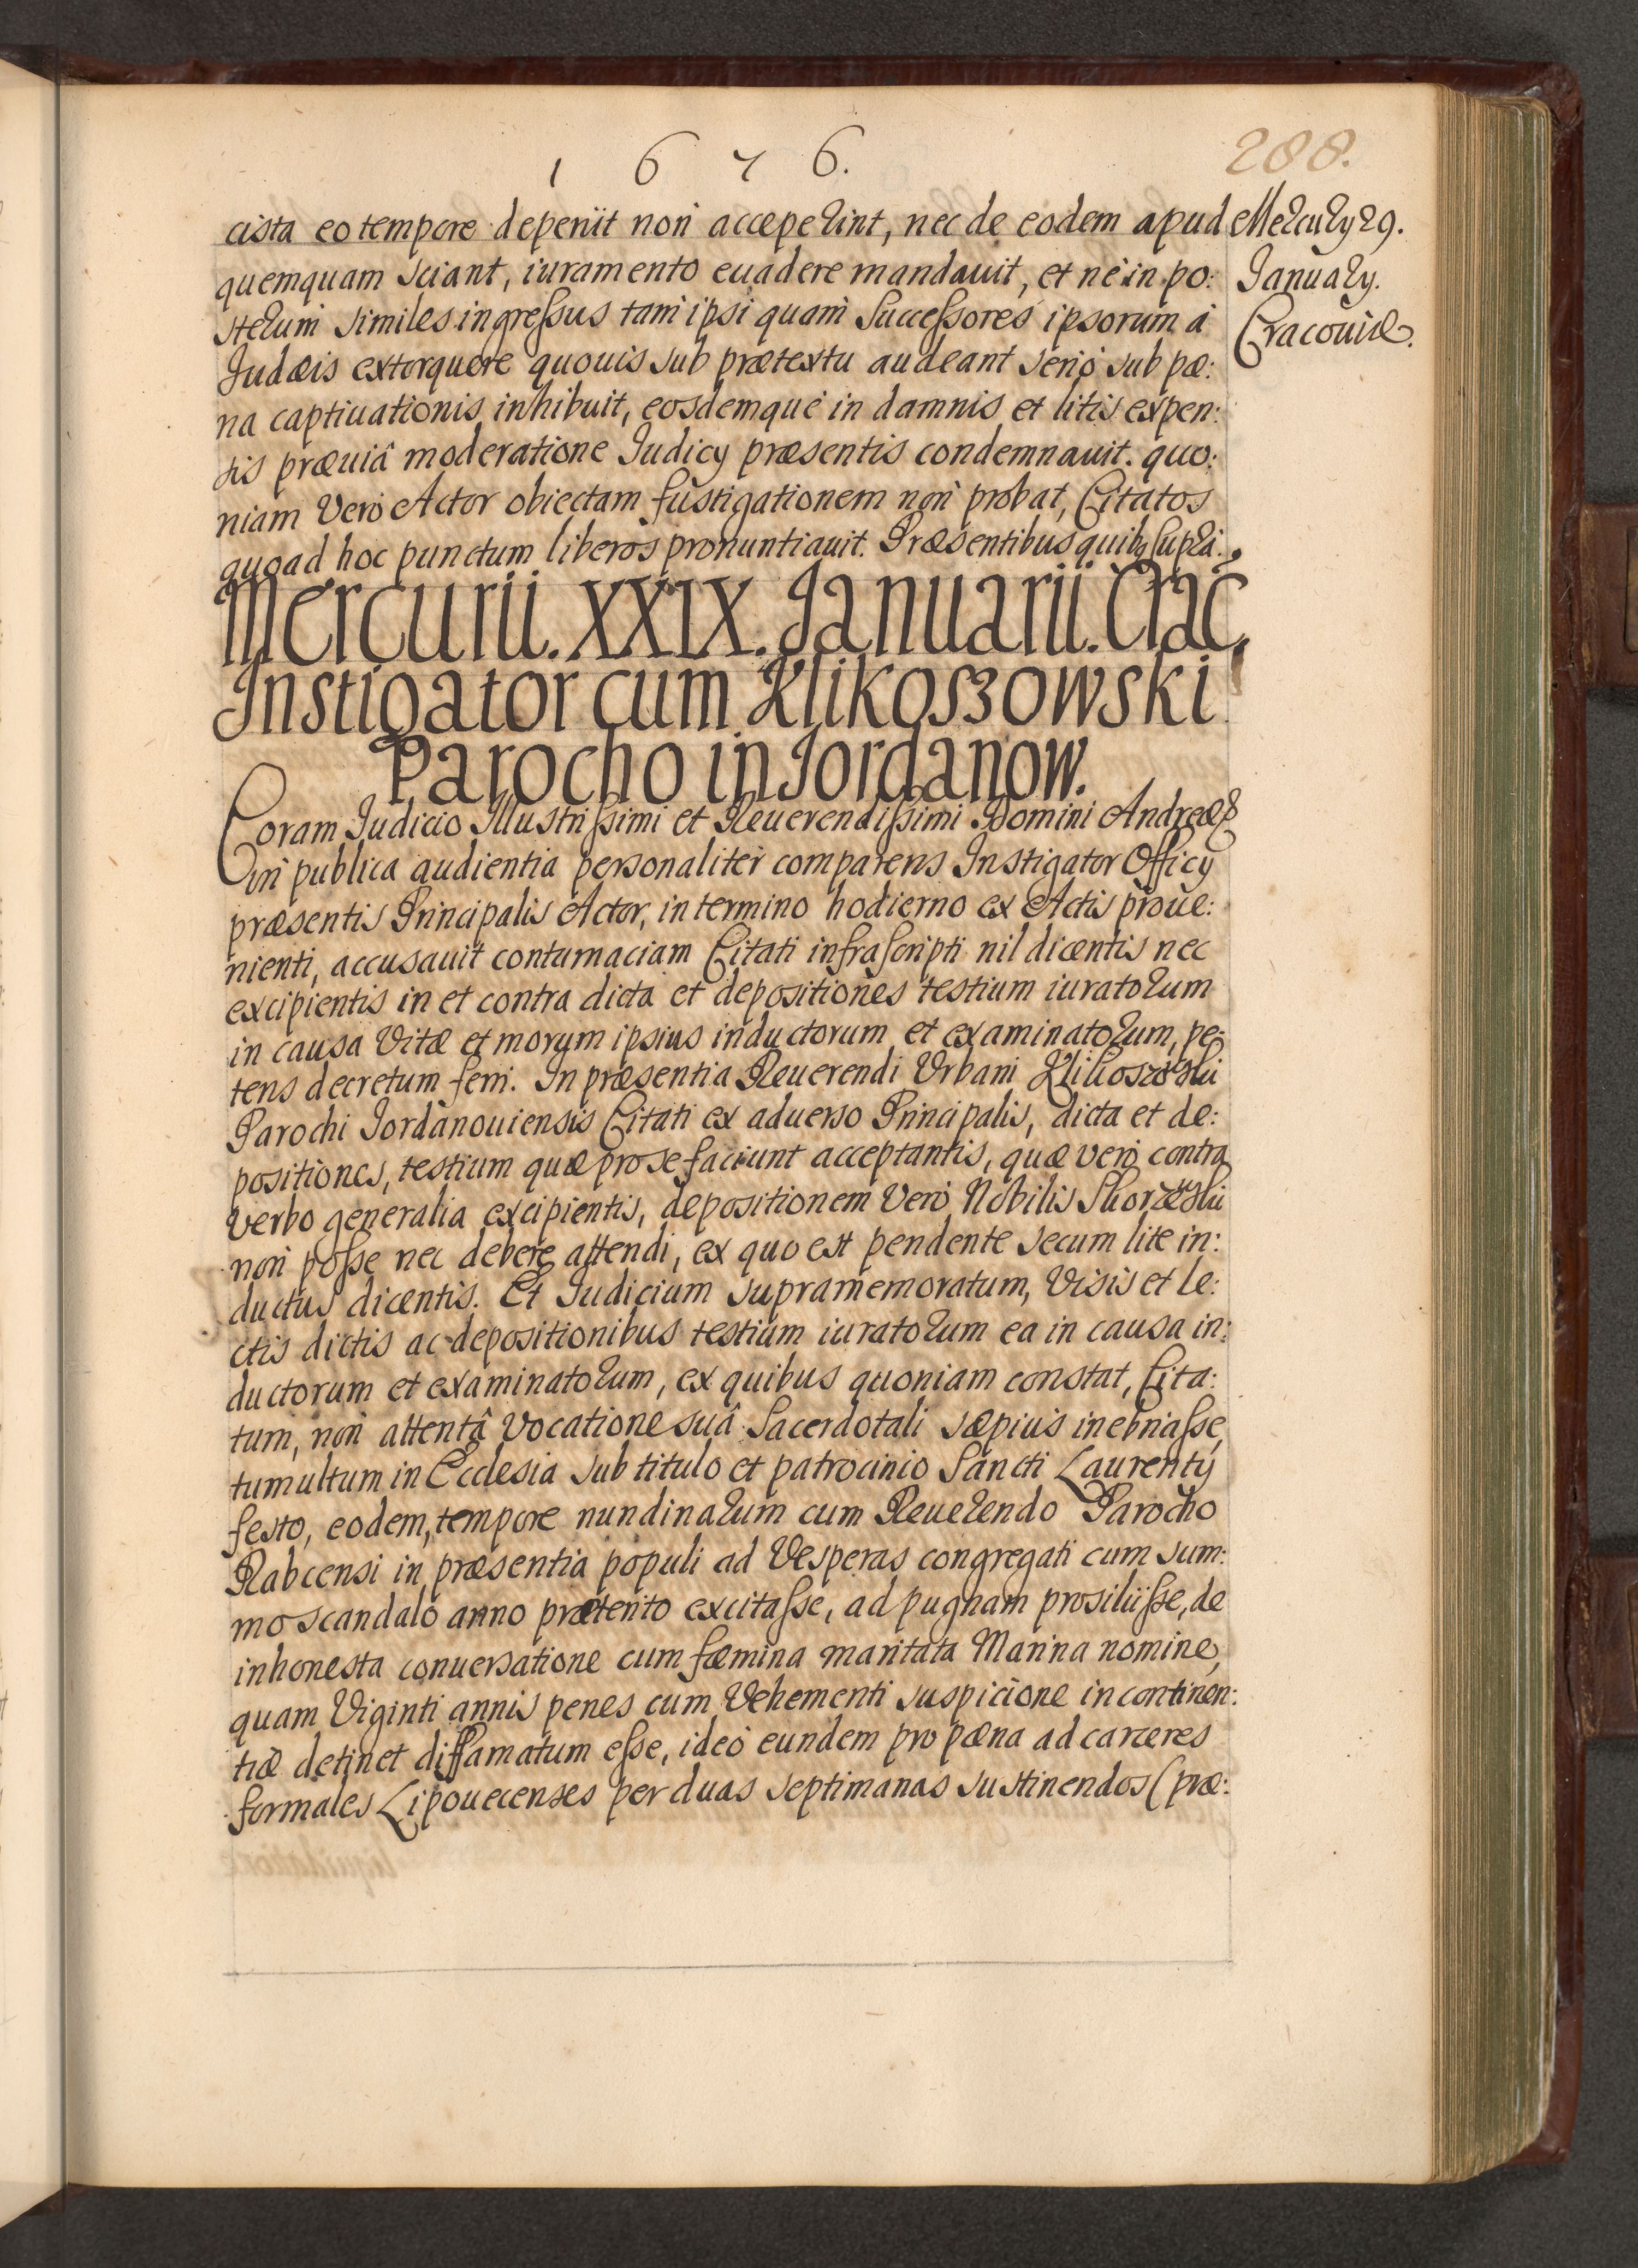 1 6 7 6.
288.
cista eo tempore deperiit non accepelint, nec de eodem apud
quemquam sciant, iuramento euadere mandauit, et ne in po:
sterum similes ingressus tam ipsi quam Successores ipsorum à
Iudæis extorquere quouis sub prætextu audeant serio sub pæ:
na captiuationis inhibuit, eosdemque in damnis et litis expen:
sis præuiâ moderatione Iudicy præsentis condemnauit. quo:
niam Vero Actor obiectam fustigationem non probat, Citatos
quoad hoc punctum liberos pronuntiauit. Præsentibus quibus supra.
Mercury 29.
January.
Cracouiæ.
Mercurii. XXIX. Januarii. Crac.
Instigator cum Klikoszowski
Parocho in Jordanow.
Coram Iudicio Illustrissimi et Reuerendissimi Domini Andreæ
in publica audientia personaliter comparens Instigator Officy
præsentis Principalis Actor, in termino hodierno ex Actis proue:
nienti, accusauit contumaciam Citati infrascripti nil dicentis nec
excipientis in et contra dicta et depositiones testium iuratorum
in causa Vitæ et morum ipsius inductorum et examinatorum, pe:
tens decretum ferri. In præsentia Reuerendi Vrbani Klikoszowski
Parochi Iordanouiensis Citati ex aduerso Principalis, dicta et de:
positiones, testium quæ pro se faciunt acceptantis, quæ vero contra
verbo generalia excipientis, depositionem Vero Nobilis Skorzewski
non posse nec debere attendi, ex quo est pendente secum lite in:
ductus dicentis. Et Iudicium supramemoratum, Visis et le:
ctis dictis ac depositionibus testium iuratorum ea in causa in:
ductorum et examinatorum, ex quibus quoniam constat, Cita:
tum, non attentâ Vocatione suâ Sacerdotali sæpius inebriasse,
tumultum in Ecclesia sub titulo et patrocinio Sancti Laurenty
festo, eodem, tempore nundinarum cum Reuerendo Parocho
Rabcensi in præsentia populi ad Vesperas congregati cum sum:
mo scandalo anno præterito excitasse, ad pugnam prosiliisse, de
inhonesta conuersatione cum fæmina maritata Marina nomine,
quam Viginti annis penes eum Vehementi suspicione incontinen:
tiæ detinet diffamatum esse, ideo eundem pro pæna ad carceres
formales Lipouecenses per duas septimanas sustinendos (præ: